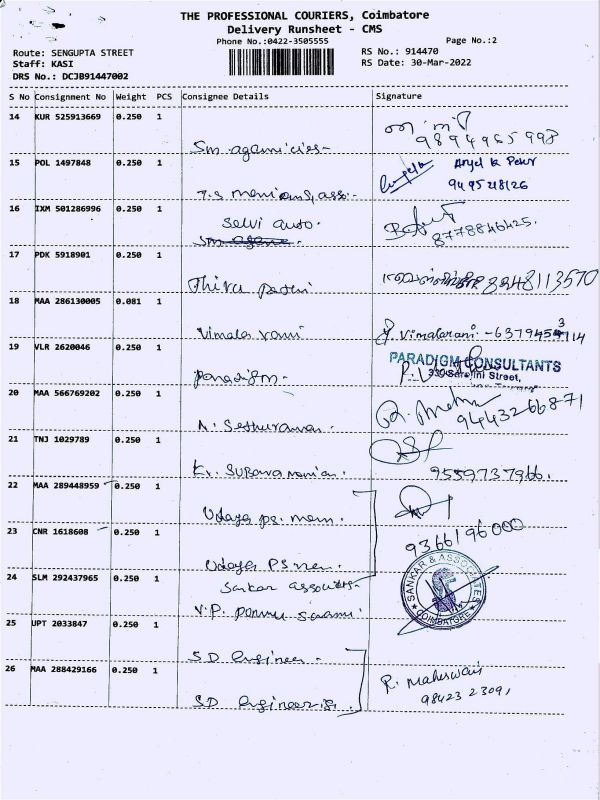 THE PROFESSIONAL COURIERS, Coimbatore
Delivery Runsheet - CMS
Phone No.:0422-3505555
Page No.:2
Route: SENGUPTA STREET
RS No.: 914470
Staff: KASI
RS Date: 30-Mar-2022
DRS No.: DCJB91447002
S No Consignment No Weight PCS Consignee Details Signature
14 KUR 525913669 0.250 1
Sm agencies-
9894965998
15 POL 1497848 0.250 1
9495218126
16 IXM 501286996 0.250 1
Selvi auto.
8778846425.
17 PDK 5918901 0.250 1
8948113570
18 MAA 286130005 0.081 1
Vimala rani
Vimalarani
19 VLR 2620046 0.250 1
Paradigm-
PARADIGM CONSULTANTS
Street,
20 MAA 566769202 0.250 1
N. Sethuraman.
9443266871
21 TNJ 1029789 0.250 1
9559737966.
22 MAA 289448959 0.250 1
Udaya
23 CNR 1618608 0.250 1
9366196000
Udaya
24 SLM 292437965 0.250 1
Sankar associates-
SANKAR & ASSOCIATES
COIMBATORE
V.P.
25 UPT 2033847 0.250 1
SD Engineer-
26 MAA 288429166 0.250 1
SD
R. Maheswari
98423 23091